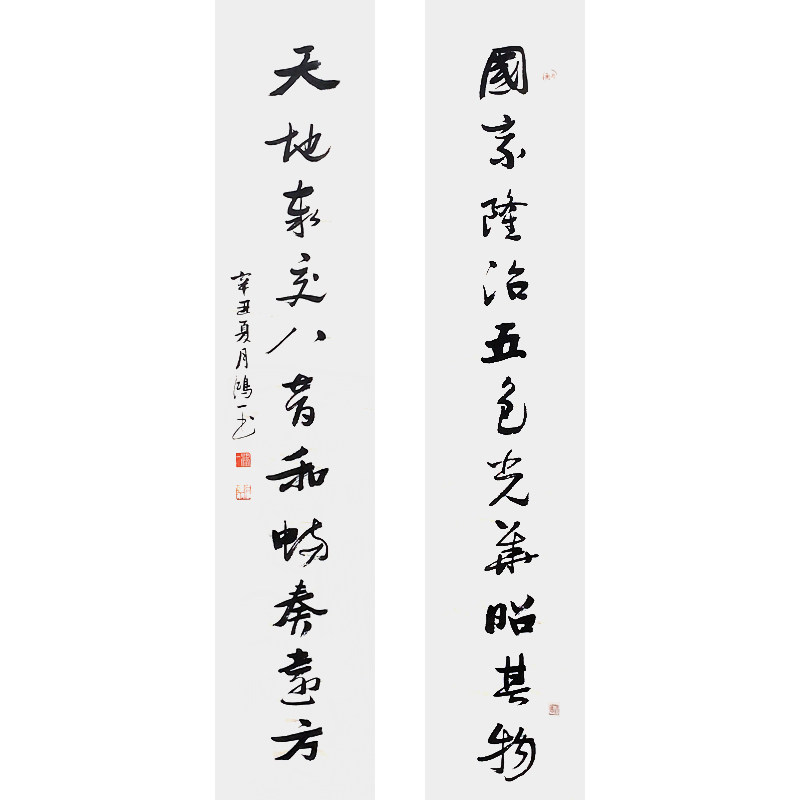 國家隆治五色光華昭其物
天地泰交八音和暢奏遠方
辛丑夏月鴻一书